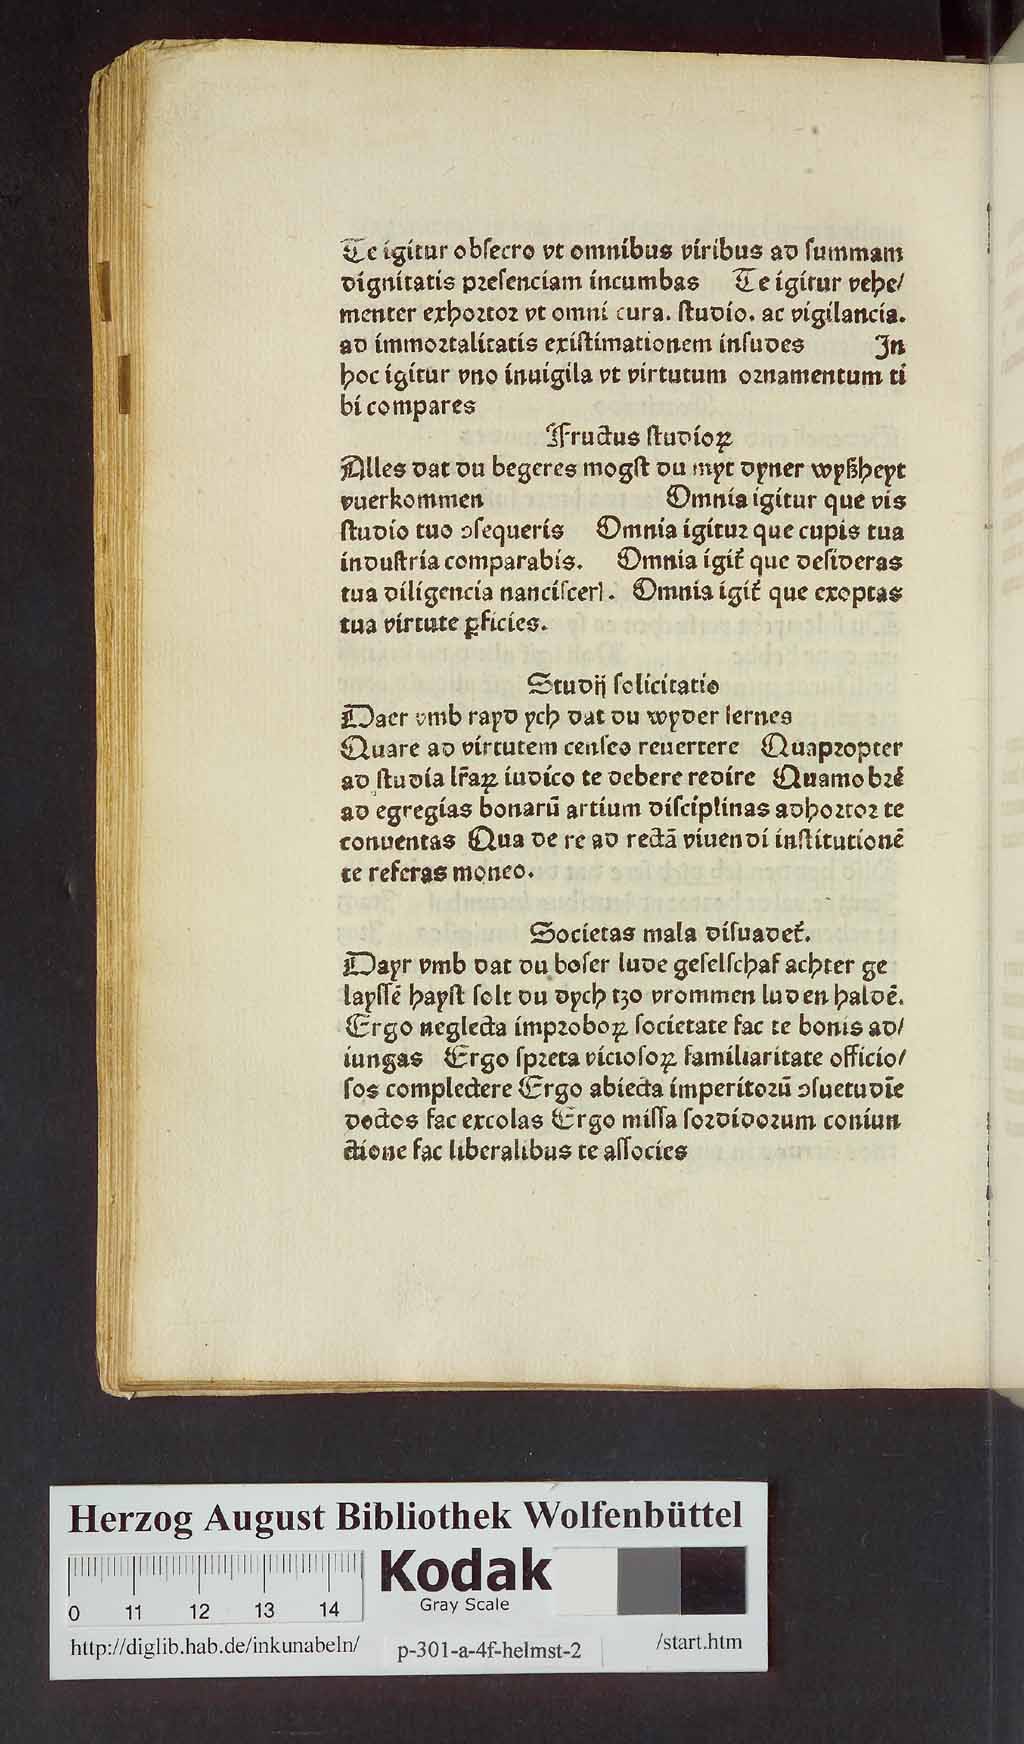 Te igitur obſecro vt omnibus viribus ad ſummam
dignitatis preſenciam incumbas Te igitur vehe/
menter exhortor vt omni cura. ſtudio. ac vigilancia.
ad immortalitatis exiſtimationem inſudes In
hoc igitur vno inuigila vt virtutum ornamentum ti
bi compares
Fructus ſtudioꝝ
Alles dat du begeres mogſt du myt dyner wyßheyt
vuerkommen Omnia igitur que vis
ſtudio tuo ꝯſequeris Omnia igitur que cupis tua
induſtria comparabis. Omnia igit̃ que deſideras
tua diligencia nanciſceri. Omnia igit̃ que exoptas
tua virtute ꝑficies.
Studij ſolicitatio
Daer vmb rayd ych dat du wyder lernes
Quare ad virtutem cenſeo reuertere Quapropter
ad ſtudia lr̃aꝝ iudico te debere redire Quamobrẽ
ad egregias bonarũ artium diſciplinas adhortor te
conuentas Qua de re ad rectã viuendi inſtitutionẽ
te referas moneo.
Societas mala diſuadet̃.
Dayr vmb dat du boſer lude geſelſchaf achter ge
layſſẽ hayſt ſolt du dych tzo vrommen luden haldẽ.
Ergo neglecta improboꝝ ſocietate fac te bonis ad/
iungas Ergo ſpreta vicioſoꝝ familiaritate officio/
ſos complectere Ergo abiecta imperitorũ ꝯſuetudĩe
doctos fac excolas Ergo miſſa ſordidorum coniun
ctione fac liberalibus te aſſocies
Herzog August Bibliothek Wolfenbüttel
Kodak
Gray Scale
0 11 12 13 14
http://diglib.hab.de/inkunabeln/ p-301-a-4f-helmst-2 /start.htm